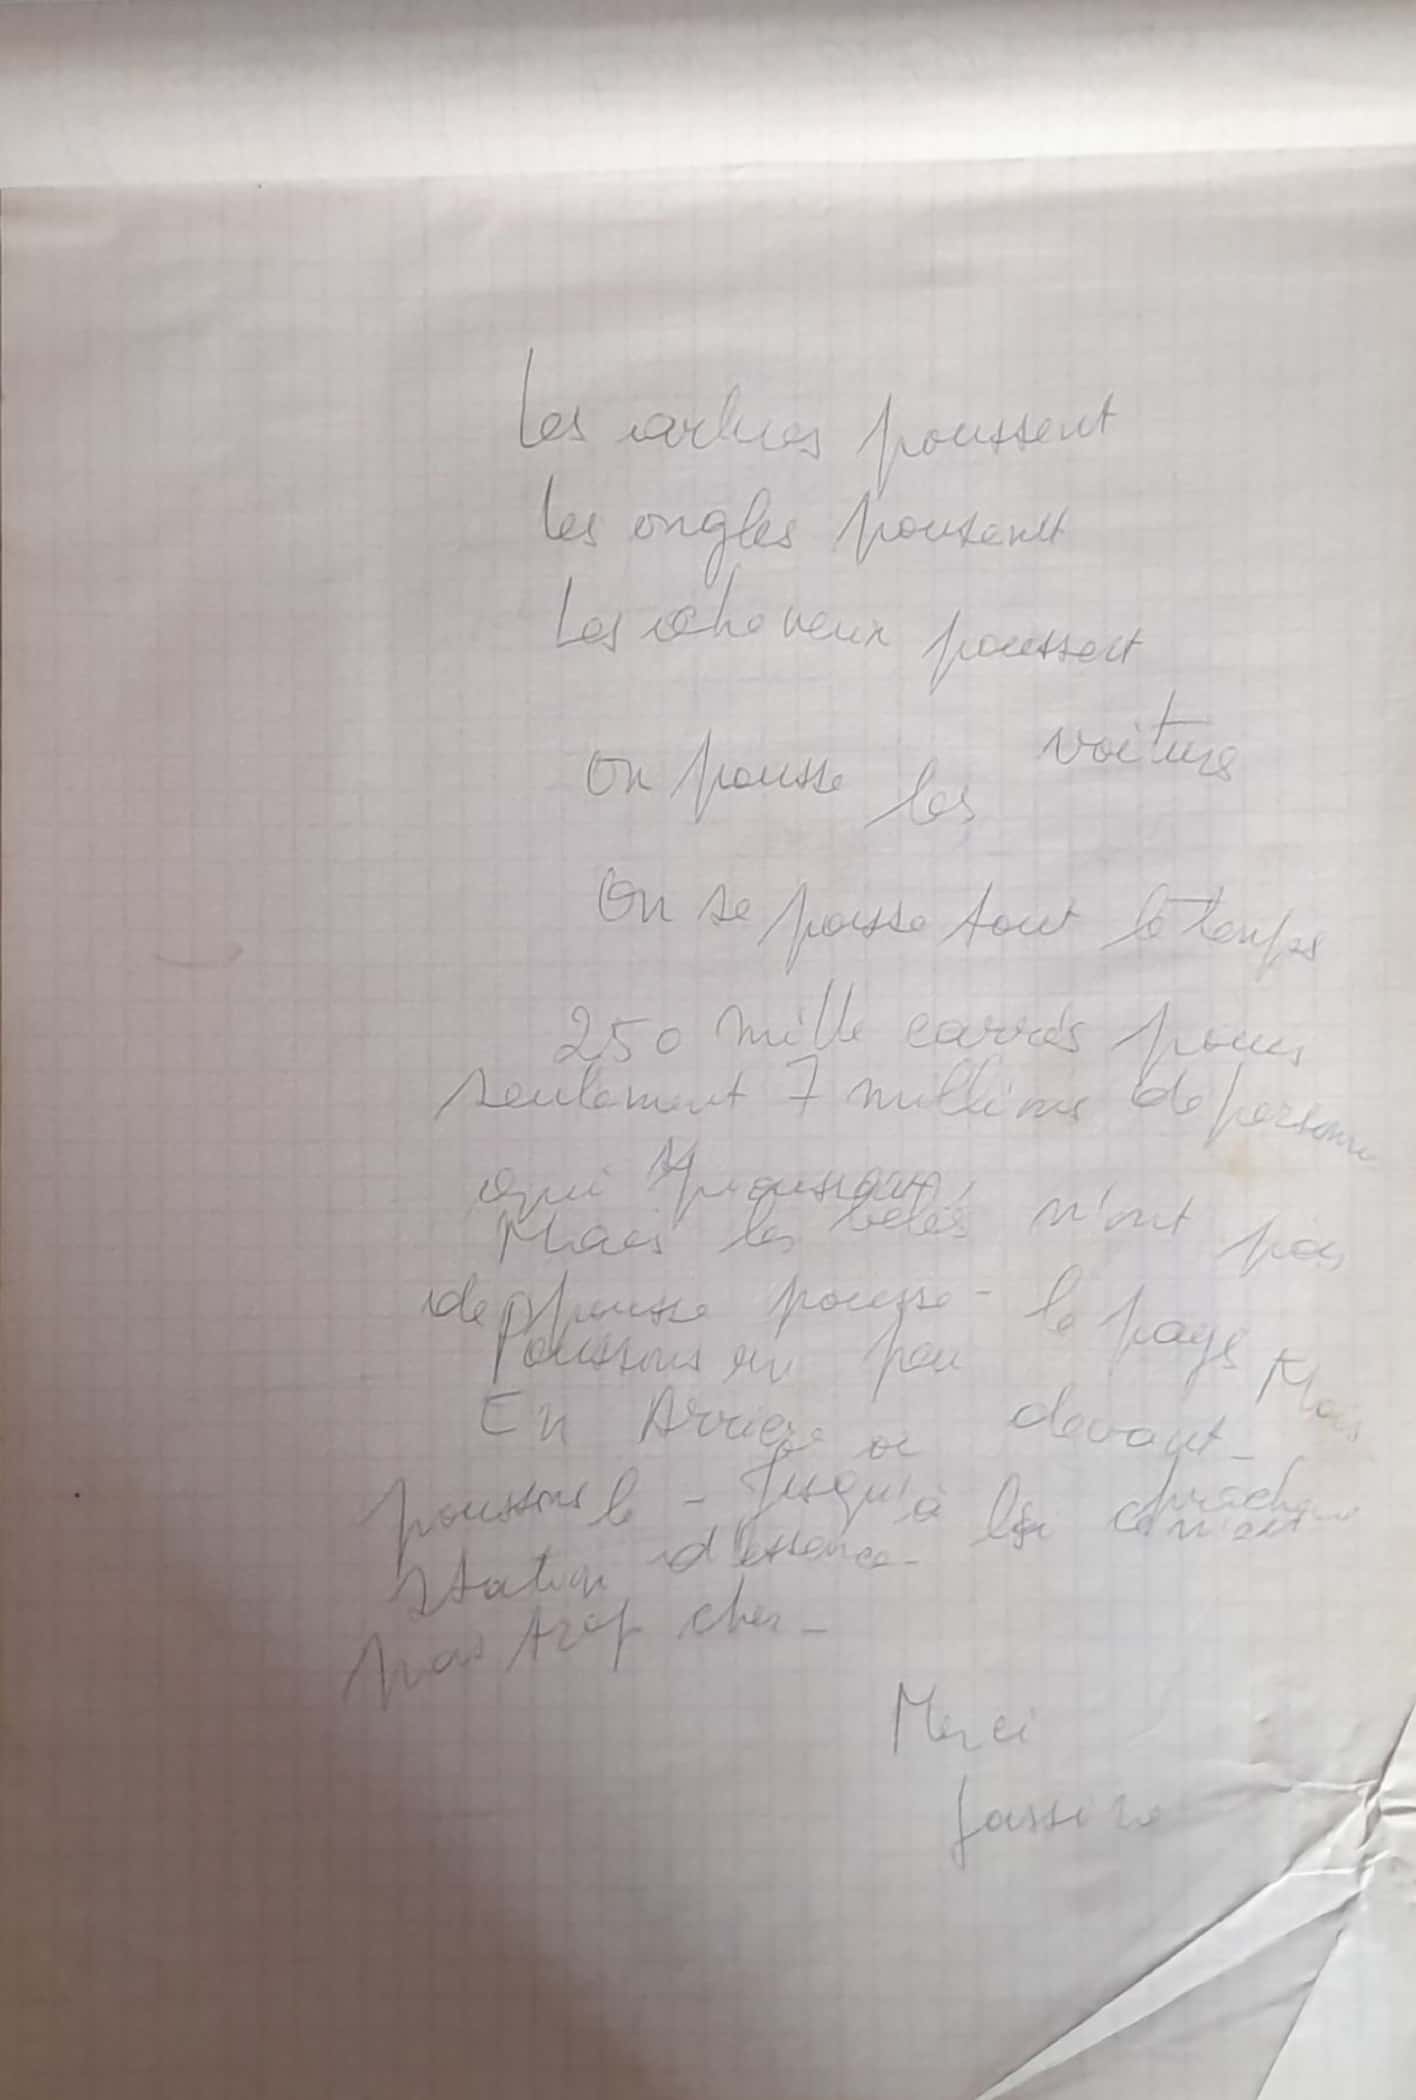 Les arbres poussent
les ongles poussent
Les cheveux poussent
On pousse les voitures
On se pousse tout le temps
250 mille carrés pour
seulement 7 millions de personne
qui poussent,
Mais les bébés n'ont pas
de pousse pousse - le pays
Poussons un peu Mais
En Arrière ou devant -
poussons le - Jusqu'à la prochaine
station d'essence - ce n'est
pas trop cher -
Merci